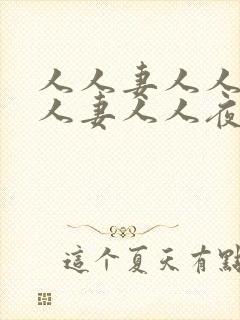 人人妻人人
人妻人人夜
這个夏天有點